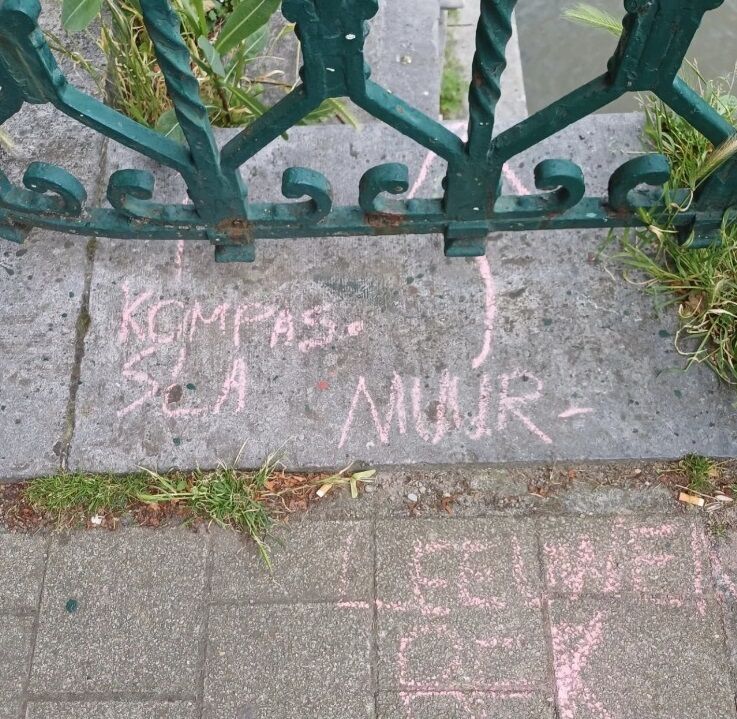 KOMPAS-
SLA
MUUR-
LEEUWEN
BEK